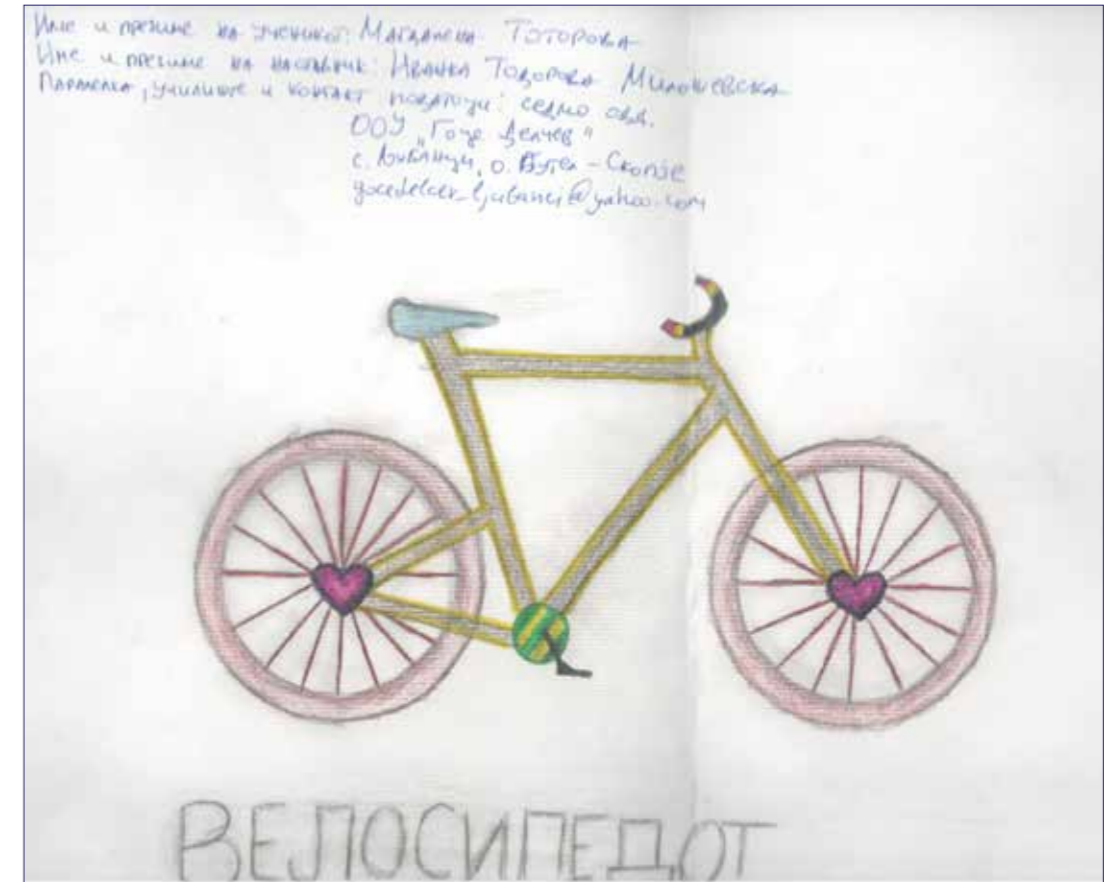 Име и презиме на ученикот: Магдалена Тоторова
Име и презиме на наставник: Иванка Тодорова Милошевска
Паралелка, училиште и контакт податоци: седмо одд.
ООУ „Гоце Делчев“
с. Љубанци, о. Бутел - Скопје
gocedelcev_ljubanci@yahoo.com
ВЕЛОСИПЕДОТ